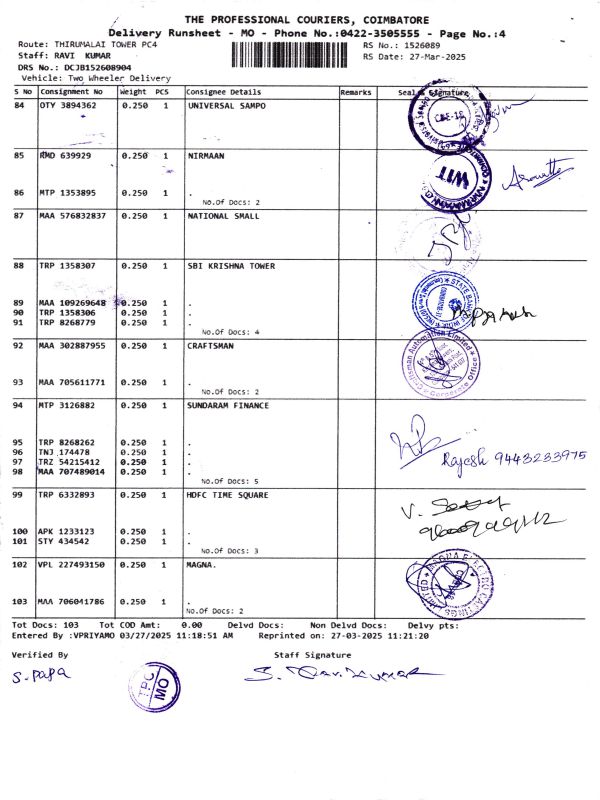 THE PROFESSIONAL COURIERS, COIMBATORE
Delivery Runsheet - MO - Phone No.:0422-3505555 - Page No.:4
Route: THIRUMALAI TOWER PC4 RS No.: 1526089
Staff: RAVI KUMAR RS Date: 27-Mar-2025
DRS No.: DCJB152608904
Vehicle: Two Wheeler Delivery
S No Consignment No Weight PCS Consignee Details Remarks Seal & Signature
84 OTY 3894362 0.250 1 UNIVERSAL SAMPO
85 RMD 639929 0.250 1 NIRMAAN
WIT
86 MTP 1353895 0.250 1 .
No.Of Docs: 2
87 MAA 576832837 0.250 1 NATIONAL SMALL
88 TRP 1358307 0.250 1 SBI KRISHNA TOWER
89 MAA 109269648 0.250 1 .
90 TRP 1358306 0.250 1 .
91 TRP 8268779 0.250 1 .
No.Of Docs: 4
92 MAA 302887955 0.250 1 CRAFTSMAN
Craftsman Automation Limited
Corporate Office
93 MAA 705611771 0.250 1 .
No.Of Docs: 2
94 MTP 3126882 0.250 1 SUNDARAM FINANCE
95 TRP 8268262 0.250 1 .
96 TNJ 174478 0.250 1 .
97 TRZ 54215412 0.250 1 .
98 MAA 707489014 0.250 1 .
Rajesh 9443233975
No.Of Docs: 5
99 TRP 6332893 0.250 1 HDFC TIME SQUARE
100 APK 1233123 0.250 1 .
101 STY 434542 0.250 1 .
No.Of Docs: 3
102 VPL 227493150 0.250 1 MAGNA.
103 MAA 706041786 0.250 1 .
No.Of Docs: 2
Tot Docs: 103 Tot COD Amt: 0.00 Delvd Docs: Non Delvd Docs: Delvy pts:
Entered By :VPRIYAMO 03/27/2025 11:18:51 AM Reprinted on: 27-03-2025 11:21:20
Verified By Staff Signature
S. Papa S. Ravi Kumar
TPC
MO